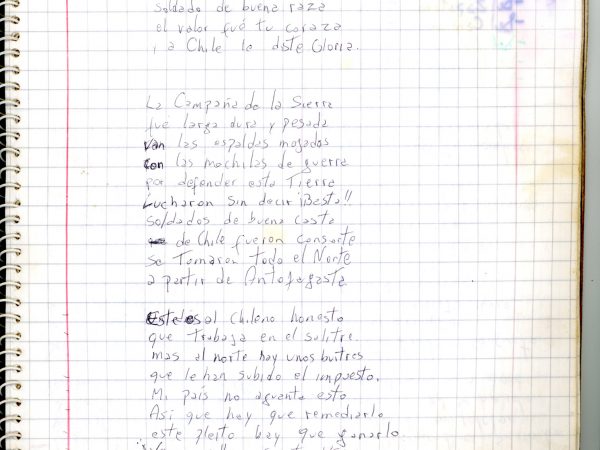 soldado de buena raza
el valor fué tu coraza
y a Chile le diste Gloria.
La Campaña de la Sierra
fué larga dura y pesada
van las espaldas mojadas
con las mochilas de guerra
por defender esta Tierra
Lucharon sin decir ¡Basta!!
soldados de buena casta
de Chile fueron consorte
se Tomaron todo el Norte
a partir de Antofagasta
Este es al Chileno honesto
que trabaja en el salitre
mas al norte hay unos buitres
que le han subido el impuesto.
Mi país no aguanta esto
Asi que hay que remediarlo
este pleito hay que ganarlo